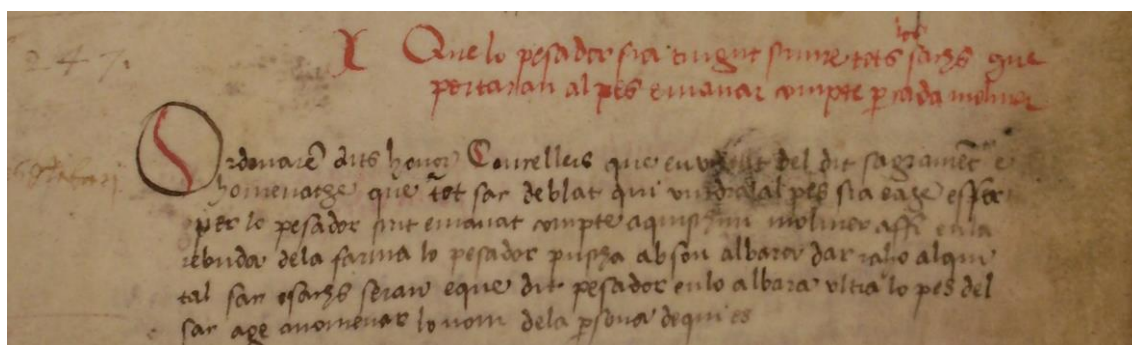 247.
X Que lo pesador sia tingut scriure tots los sachs que
portaran al pes e manar compte p cada moliner
Ordonarẽ dits honor Concellers que en virtut del dit sagramẽt e
homenatge que tot sac de blat qui vindra al pes sia e age esser
per lo pesador scrit e manat compte a quiscun moliner affi en la
rebuda dela farina lo pesador puscha ab son albara dar raho al qui
tal sac o sachs seran e que dit pesador en lo albara ultra lo pes del
sac age anomenar lo nom dela psona de qui es